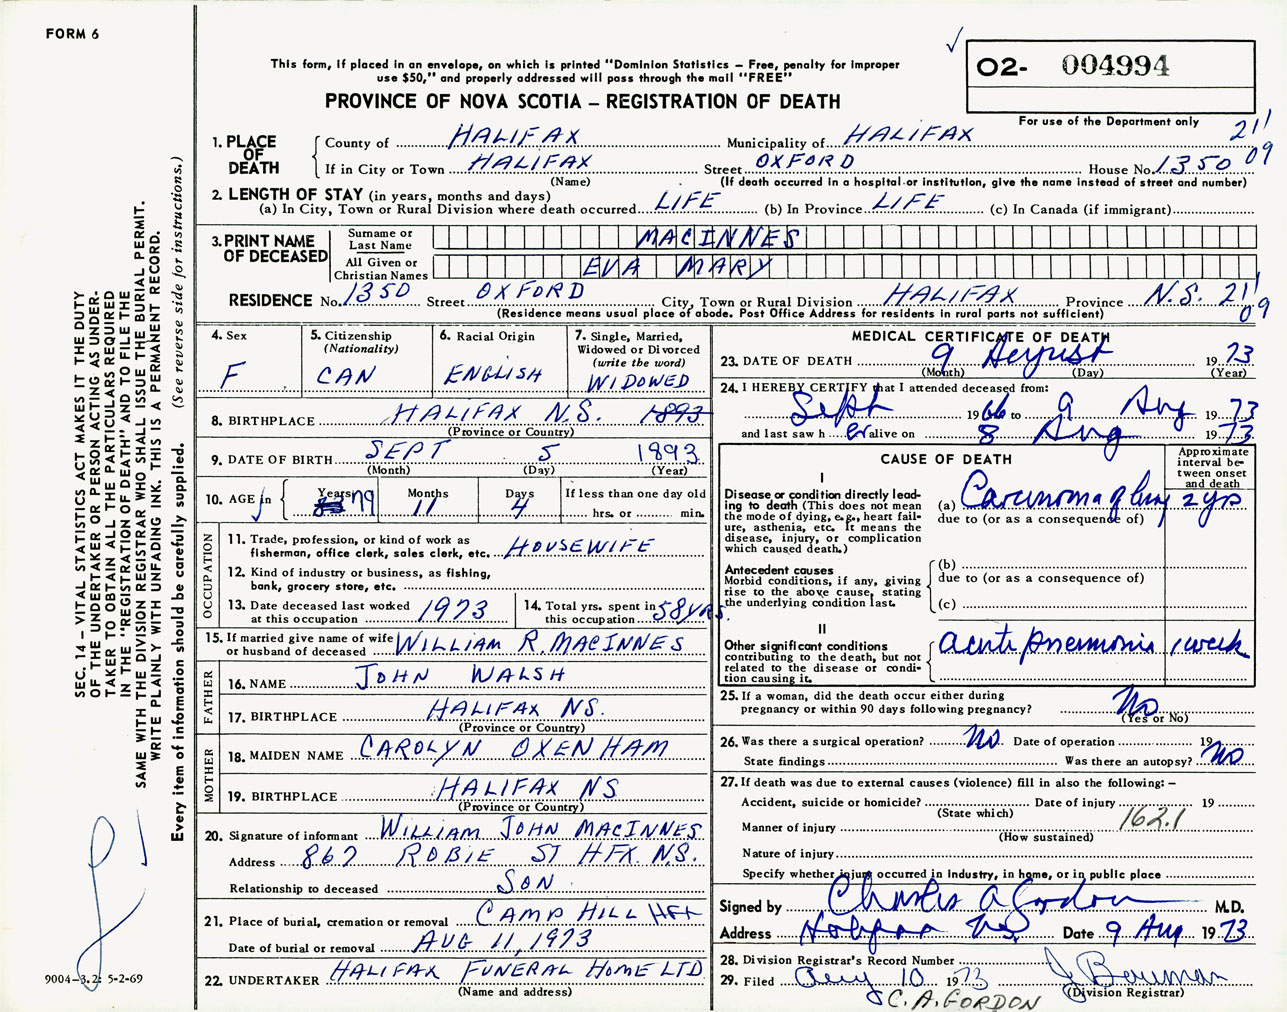 FORM 6
This form, if placed in an envelope, on which is printed "Dominion Statistics – Free, penalty for improper
use $50," and properly addressed will pass through the mail "FREE"
PROVINCE OF NOVA SCOTIA – REGISTRATION OF DEATH
O2- 004994
For use of the Department only
211
09
1. PLACE OF DEATH
County of HALIFAX Municipality of HALIFAX
If in City or Town HALIFAX Street OXFORD House No. 1350
(Name) (If death occurred in a hospital or institution, give the name instead of street and number)
2. LENGTH OF STAY (in years, months and days)
(a) In City, Town or Rural Division where death occurred LIFE (b) In Province LIFE (c) In Canada (if immigrant)
3. PRINT NAME OF DECEASED
Surname or Last Name MACINNES
All Given or Christian Names EVA MARY
RESIDENCE No. 1350 Street OXFORD City, Town or Rural Division HALIFAX Province N.S. 211
09
(Residence means usual place of abode. Post Office Address for residents in rural parts not sufficient)
4. Sex
F
5. Citizenship
(Nationality)
CAN
6. Racial Origin
ENGLISH
7. Single, Married,
Widowed or Divorced
(write the word)
WIDOWED
8. BIRTHPLACE HALIFAX N.S. 1893
(Province or Country)
9. DATE OF BIRTH SEPT 5 1893
(Month) (Day) (Year)
10. AGE in
Years 79
Months 11
Days 4
If less than one day old
hrs. or min.
OCCUPATION
11. Trade, profession, or kind of work as
fisherman, office clerk, sales clerk, etc. HOUSEWIFE
12. Kind of industry or business, as fishing,
bank, grocery store, etc.
13. Date deceased last worked
at this occupation 1973
14. Total yrs. spent in
this occupation 58 YRS.
15. If married give name of wife
or husband of deceased WILLIAM R. MACINNES
FATHER
16. NAME JOHN WALSH
17. BIRTHPLACE HALIFAX NS.
(Province or Country)
MOTHER
18. MAIDEN NAME CAROLYN OXENHAM
19. BIRTHPLACE HALIFAX NS
(Province or Country)
20. Signature of informant WILLIAM JOHN MACINNES
Address 867 ROBIE ST HFX. N.S.
Relationship to deceased SON
21. Place of burial, cremation or removal CAMP HILL HFX
Date of burial or removal AUG 11, 1973
22. UNDERTAKER HALIFAX FUNERAL HOME LTD
(Name and address)
MEDICAL CERTIFICATE OF DEATH
23. DATE OF DEATH 9 August 1973
(Month) (Day) (Year)
24. I HEREBY CERTIFY that I attended deceased from:
Sept 1966 to 9 Aug 1973
and last saw h er alive on 8 Aug 1973
CAUSE OF DEATH
Approximate
interval be-
tween onset
and death
I
Disease or condition directly lead-
ing to death (This does not mean
the mode of dying, e.g., heart fail-
ure, asthenia, etc. It means the
disease, injury, or complication
which caused death.)
(a) Carcinoma of lung 2 yrs
due to (or as a consequence of)
Antecedent causes
Morbid conditions, if any, giving
rise to the above cause, stating
the underlying condition last.
(b)
due to (or as a consequence of)
(c)
II
Other significant conditions
contributing to the death, but not
related to the disease or condi-
tion causing it.
acute pneumonia 1 week
25. If a woman, did the death occur either during
pregnancy or within 90 days following pregnancy? No
(Yes or No)
26. Was there a surgical operation? No. Date of operation 19
State findings Was there an autopsy? No
27. If death was due to external causes (violence) fill in also the following: –
Accident, suicide or homicide? Date of injury 19
(State which)
Manner of injury 162.1
(How sustained)
Nature of injury
Specify whether injury occurred in industry, in home, or in public place
Signed by Charles A Gordon M.D.
Address Halifax N.S. Date 9 Aug 1973
28. Division Registrar's Record Number
29. Filed Aug 10 1973 J Bowman
(Division Registrar)
C. A. GORDON
SEC. 14 – VITAL STATISTICS ACT MAKES IT THE DUTY
OF THE UNDERTAKER OR PERSON ACTING AS UNDER-
TAKER TO OBTAIN ALL THE PARTICULARS REQUIRED
IN THE "REGISTRATION OF DEATH" AND TO FILE THE
SAME WITH THE DIVISION REGISTRAR WHO SHALL ISSUE THE BURIAL PERMIT.
WRITE PLAINLY WITH UNFADING INK. THIS IS A PERMANENT RECORD.
Every item of information should be carefully supplied. (See reverse side for instructions.)
9004-3.2: 5-2-69